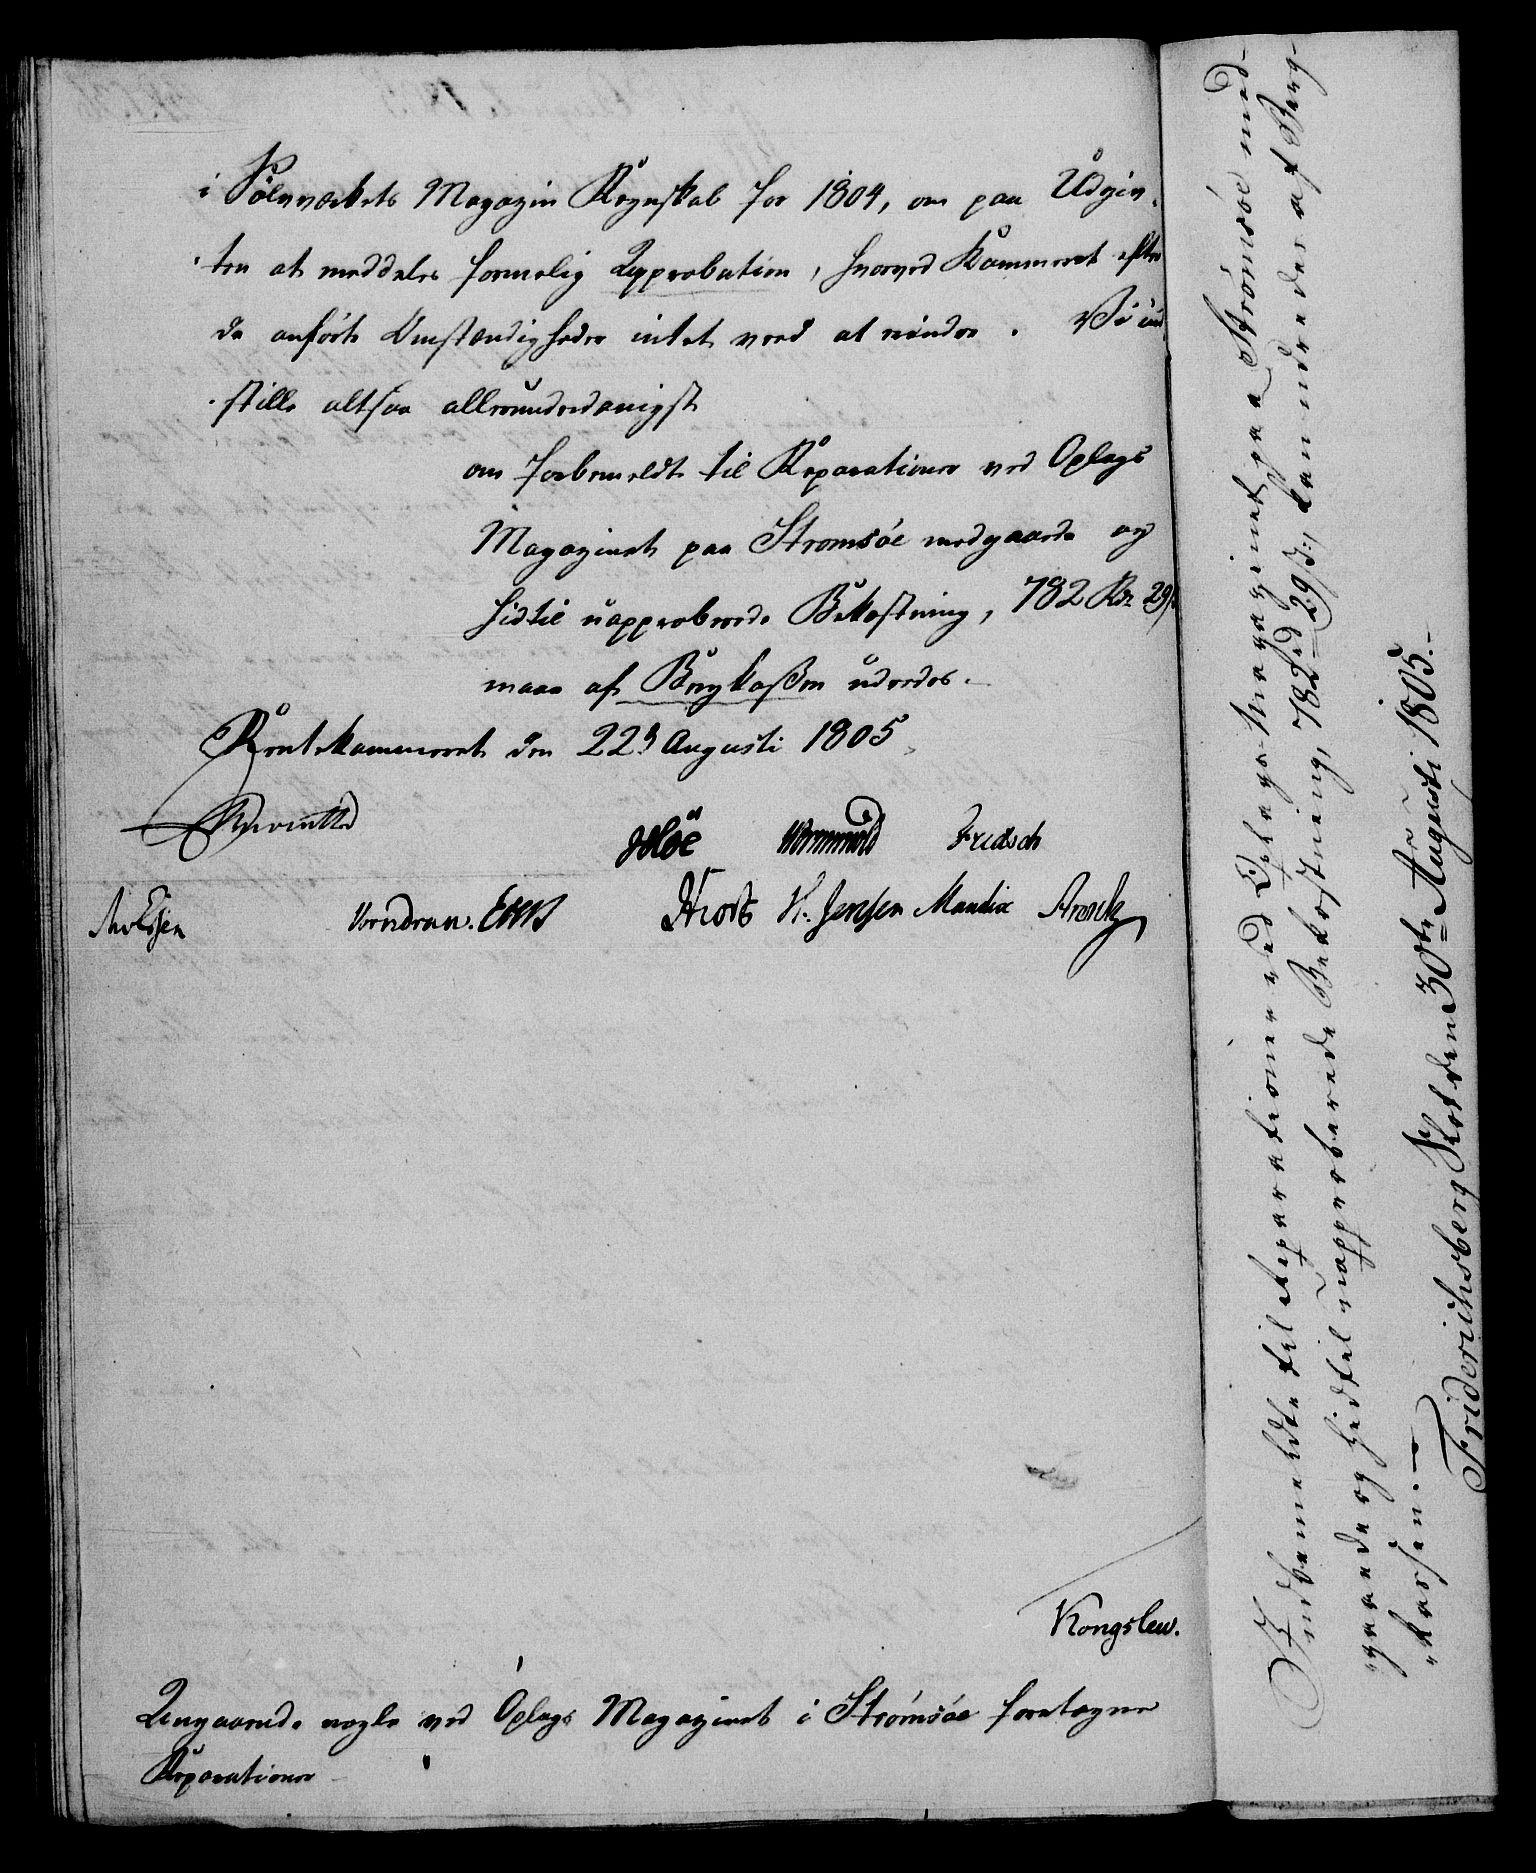 i Sölvværkets Magazin Regnskab for 1804, om paa Udgiv-
ten at meddeles formelig Approbation, hvorved Kammeret efter
de anførte Omstændigheder intet veed at erindre. Vi ind
stille altsaa allerunderdanigst
om forbemeldte til Reparationer ved Oplags
Magazinet paa Strømsöe medgaaede og
hidtil uapproberede Bekostning, 782 Rdr 29 s
maae af Bergkaßen udredes.
Rentekammeret den 22d Augusti 1805
Reventlow
Höe Wormskiold Fridsch
Vorndran. Hiort H. Jensen Mandix
Kongslew.
Angaaende nogle ved Oplags Magazinet i Strømsöe foretagne
Reparationer
Indbemeldte til Reparationer ved Oplags-Magazinet paa Strømsöe med-
gaaede og hidtil uapproberede Bekostning, 782 rd 29 s, kan udredes af Berg-
kassen. —
Friderichsberg Slot den 30te Augusti 1805. —